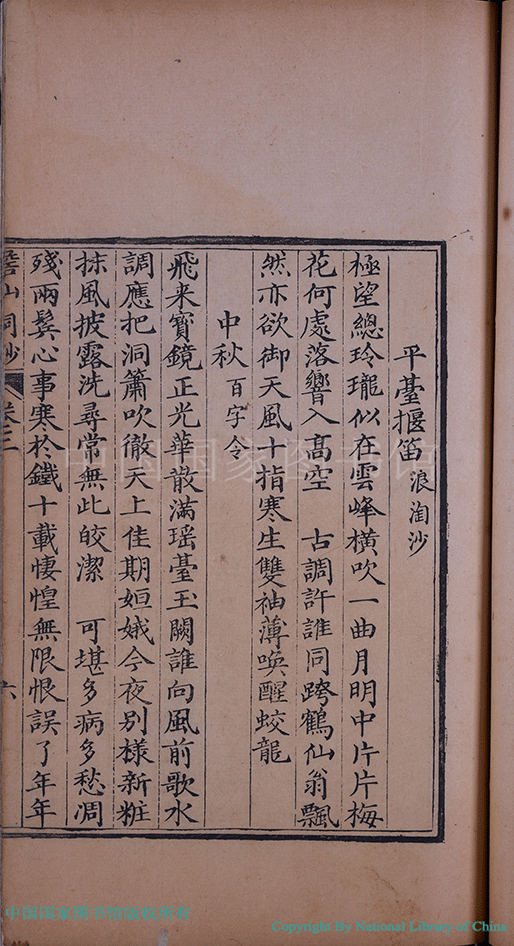 平臺擫笛 浪淘沙
極望總玲瓏似在雲峰橫吹一曲月明中片片梅
花何處落響入高空 古調許誰同跨鶴仙翁飄
然亦欲御天風十指寒生雙袖薄喚醒蛟龍
中秋 百字令
飛来寶鏡正光華散滿瑶臺玉闕誰向風前歌水
調應把洞簫吹徹天上佳期姮娥今夜別様新粧
抹風披露洗尋常無此皎潔 可堪多病多愁凋
殘兩鬂心事寒於鐵十載悽惶無限恨誤了年年
山詞鈔 卷三 六
中国国家图书馆
中国国家图书馆版权所有
Copyright By National Library of China